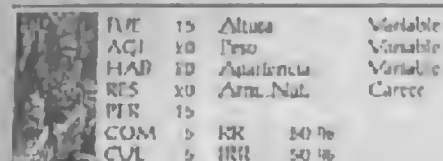 FUE 15 Altura Variable
AGI 10 Peso Variable
HAB 10 Apariencia Variable
RES 20 Arm. Nat. Carece
PER 15
COM 5 RR 50 %
CUL 5 IRR 50 %